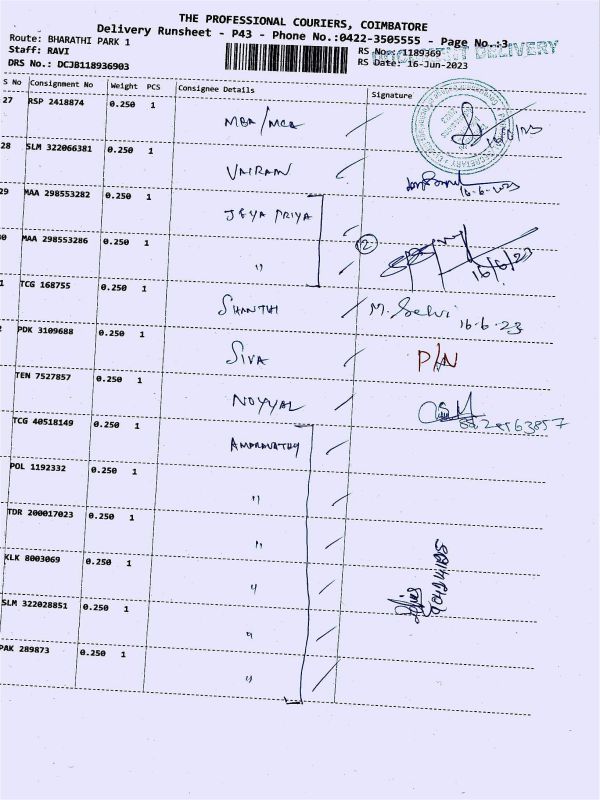 THE PROFESSIONAL COURIERS, COIMBATORE
Delivery Runsheet - P43 - Phone No.:0422-3505555 - Page No.:3
Route: BHARATHI PARK 1
RS No.: 1189369
Staff: RAVI
RS Date: 16-Jun-2023
DELIVERY
DRS No.: DCJB118936903
S No Consignment No Weight PCS Consignee Details Signature
27 RSP 2418874 0.250 1 MBA/MCA
28 SLM 322066381 0.250 1 VAIRAM 16-6-2023
29 MAA 298553282 0.250 1 JEYA PRIYA
0 MAA 298553286 0.250 1 " 2 16/6/23
1 TCG 168755 0.250 1 SHANTHI M. Selvi 16.6.23
PDK 3109688 0.250 1 SIVA P/N
TEN 7527857 0.250 1 NOYYAL
TCG 40518149 0.250 1 AMARAVATHY
POL 1192332 0.250 1 "
TDR 200017023 0.250 1 "
KLK 8003069 0.250 1 "
SLM 322028851 0.250 1 "
PAK 289873 0.250 1 "